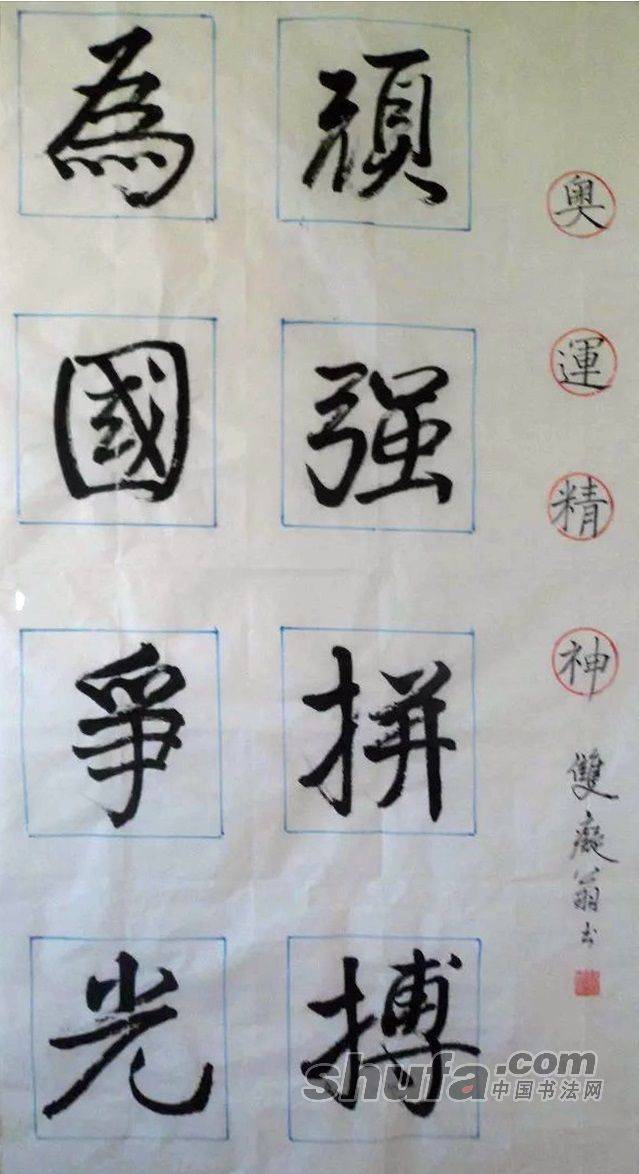 奥運精神
頑强拼搏
為國爭光
雙癡翁书
shufa.com
中国书法网